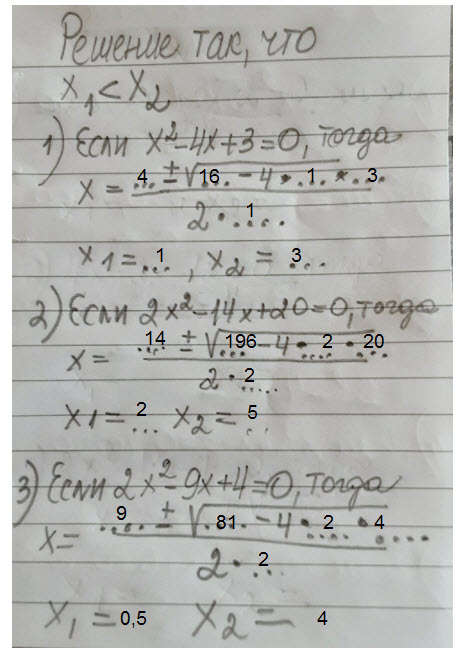 Решение так, что
x₁ < x₂
1) Если x²-4x+3=0, тогда
x = 4 ± √16 - 4 · 1 · 3
2 · 1
x1 = 1 , x₂ = 3
2) Если 2x²-14x+20=0, тогда
x = 14 ± √196 - 4 · 2 · 20
2 · 2
x1 = 2 x₂ = 5
3) Если 2x²-9x+4=0, тогда
x = 9 ± √81 - 4 · 2 · 4
2 · 2
x₁ = 0,5 x₂ = 4